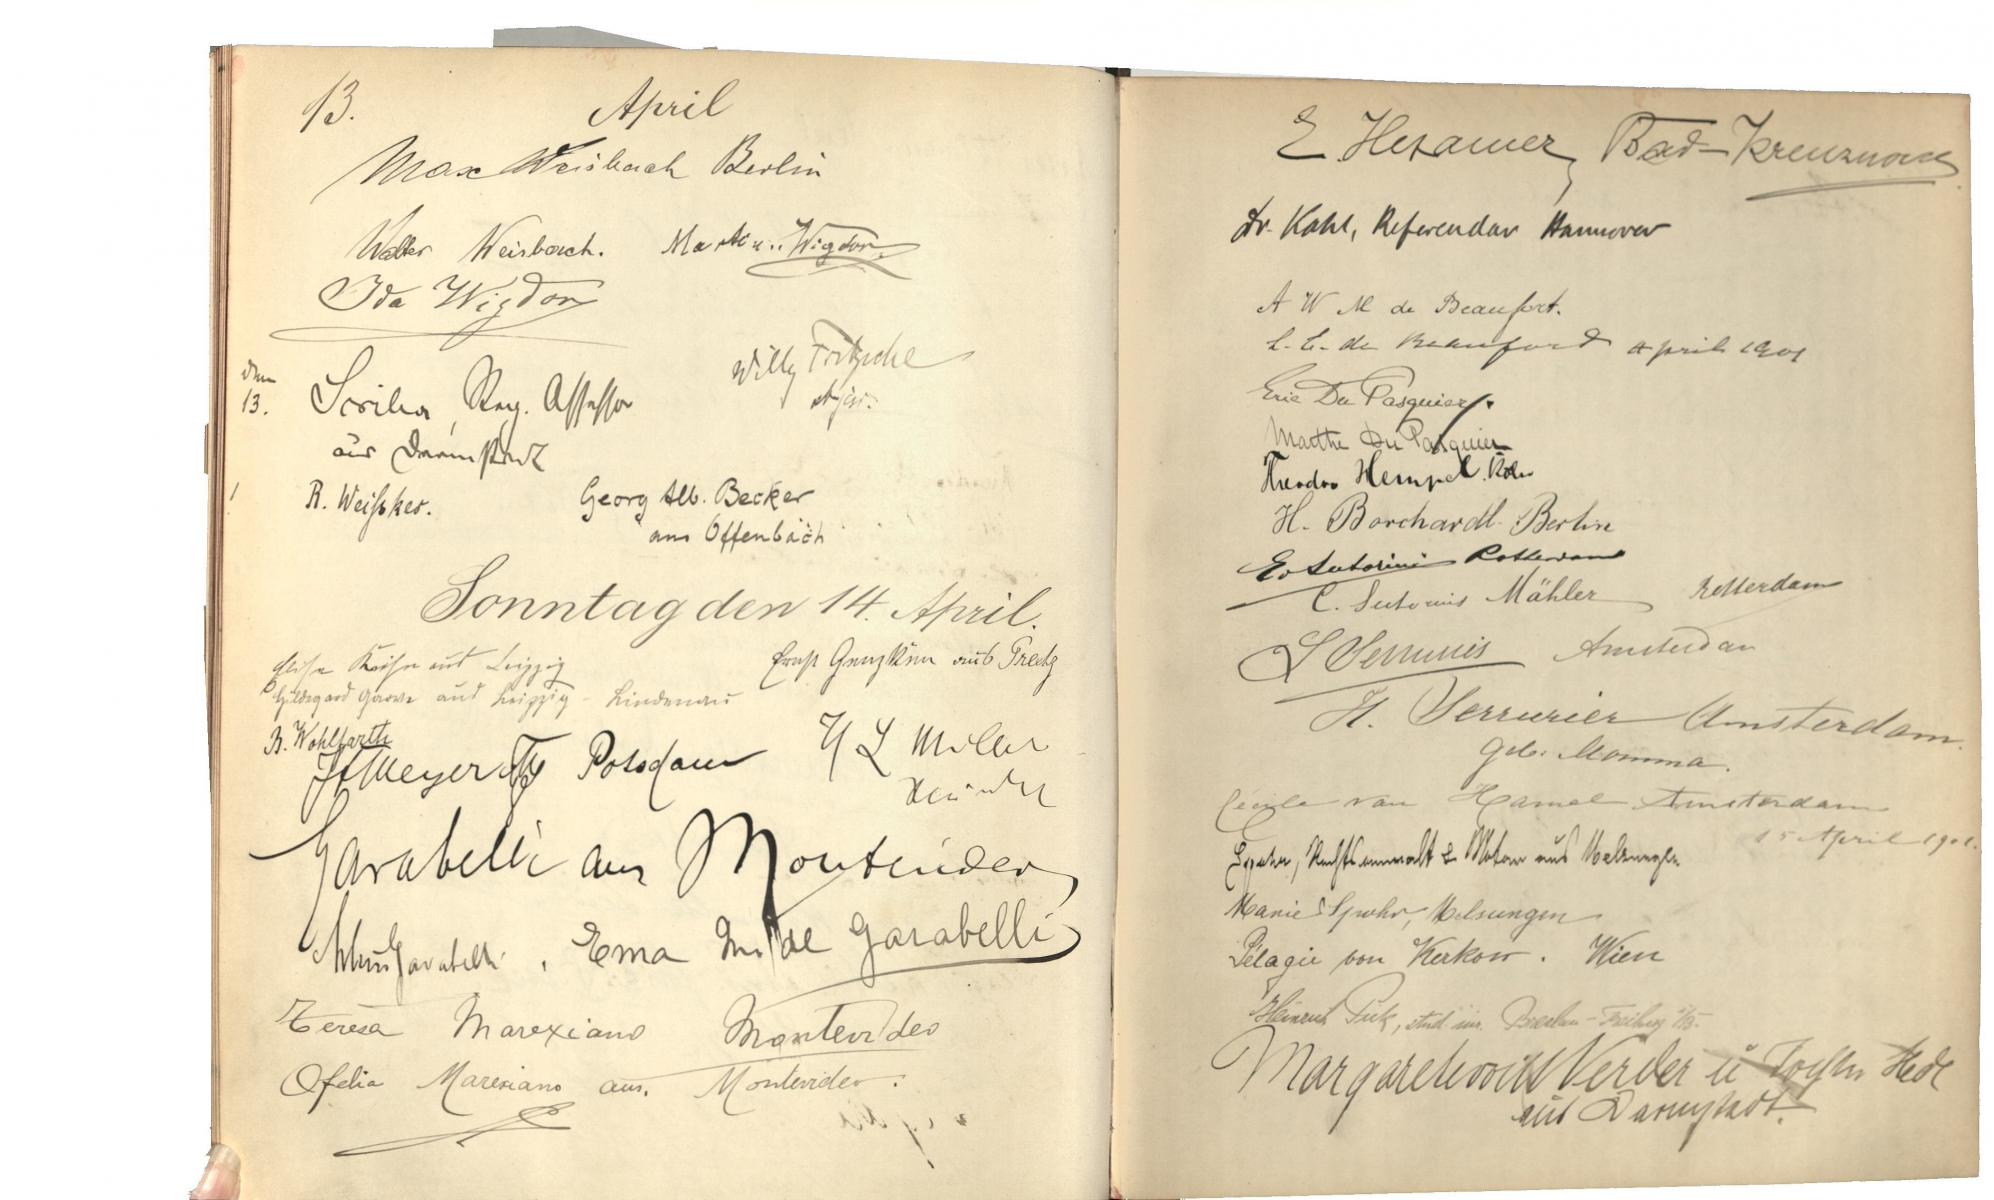 13. April
Max Weisbach Berlin
Walter Weisbach. Martin Wigdor.
Ida Wigdor
Willy Fritzsche
den
13. Scriba, Reg. Assessor
aus Darmstadt
R. Weißker. Georg Alb. Becker
aus Offenbach
Sonntag den 14. April.
Elise Kühn aus Leipzig Ernst aus Greitz
Hildegard Garve aus Leipzig - Lindenau
B. Wohlfarth
Meyer Potsdam H L Müller
Garabelli aus Montevideo
Garabelli. Ema de Garabelli
Teresa Marexiano Montevideo
Ofelia Marexiano aus. Montevideo.
E. Hexamer, Bad-Kreuznach
Dr. Kahl, Referendar Hannover
A W M de Beaufort.
L. E. de Beaufort April 1901
Eric Du Pasquier.
Marthe Du Pasquier
Theodor Hempel. Köln
H. Borchardt. Berlin
Sutorius Rotterdam
C. Sutorius Mähler Rotterdam
Amsterdam
H. Serrurier Amsterdam.
geb. Momma.
Cécile van Hamel Amsterdam
15 April 1901.
Spohr, Rechtsanwalt & Notar aus Melsungen
Marie Spohr, Melsungen
Pélagie von Kerkow. Wien
Heinrich Pick, stud. iur. Breslau - Freiburg i/B.
Margarethe Verber u
aus Darmstadt.